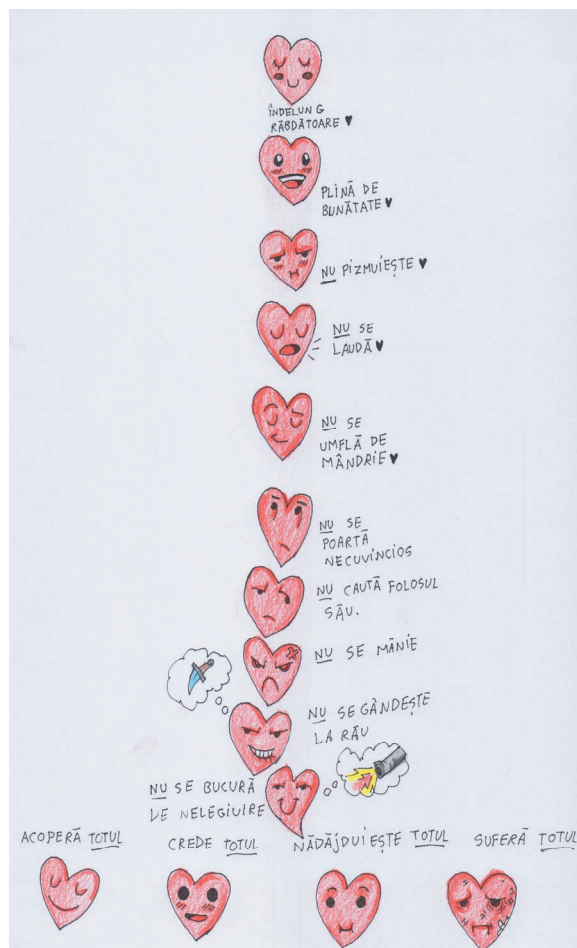 ÎNDELUNG
RĂBDĂTOARE ♥
PLINĂ DE
BUNĂTATE ♥
NU PIZMUIEȘTE ♥
NU SE
LAUDĂ ♥
NU SE
UMFLĂ DE
MÂNDRIE ♥
NU SE
POARTĂ
NECUVINCIOS
NU CAUTĂ FOLOSUL
SĂU.
NU SE MÂNIE
NU SE GÂNDEȘTE
LA RĂU
NU SE BUCURĂ
DE NELEGIUIRE
ACOPERĂ TOTUL
CREDE TOTUL
NĂDĂJDUIEȘTE TOTUL
SUFERĂ TOTUL